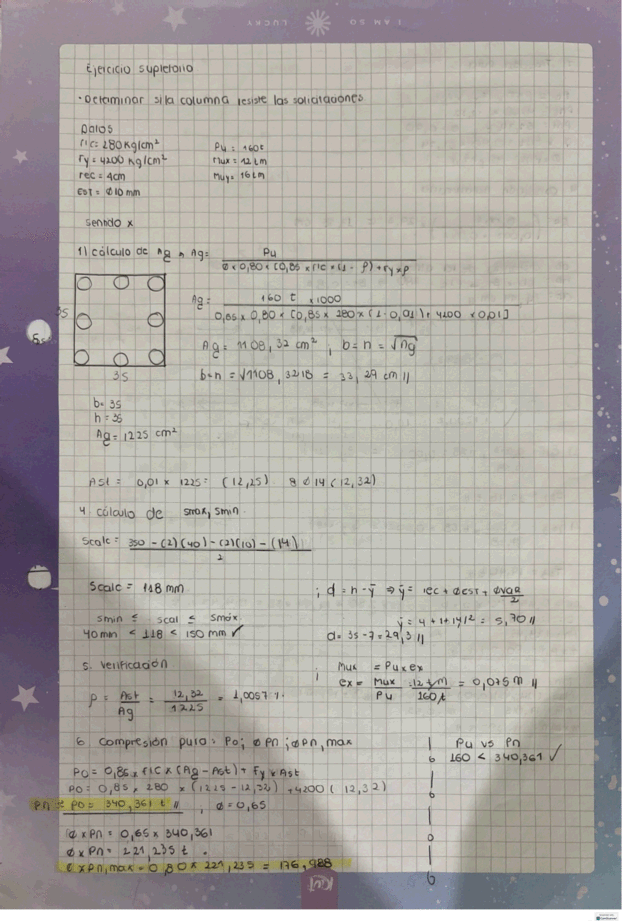 I AM SO LUCKY
Ejercicio supletorio
· Determinar si la columna resiste las solicitaciones
Datos
f'c = 280 Kg/cm² Pu = 160t
fy = 4200 Kg/cm² Mux = 12 tm
rec = 4cm Muy = 16 tm
EST = Ø10 mm
Sentido x
1) cálculo de Ag → Ag = Pu / Ø × 0,80 × [0,85 × f'c × (1 - ρ) + fy × ρ
Ag = 160 t × 1000 / 0,65 × 0,80 × [0,85 × 280 × (1 - 0,01) + 4200 × 0,01]
35
Ag = 1108,32 cm² ; b = h = √Ag
35
b=h = √1108,3218 = 33,29 cm //
b = 35
h = 35
Ag = 1225 cm²
Ast = 0,01 × 1225 = (12,25) 8 Ø 14 (12,32)
4. cálculo de smax, smin
Scalc = 350 - (2)(40) - (2)(10) - (14) / 2
Scalc = 118 mm ; d = h - ȳ ⇒ ȳ = rec + ØEST + ØVAR/2
Smin ≤ Scal ≤ Smáx. ȳ = 4 + 1 + 1,4/2 = 5,70 //
40 mm < 118 < 150 mm ✓ d = 35 - 7 = 29,3 //
5. Verificación ; Mux = Pu × ex
ρ = Ast / Ag = 12,32 / 1225 = 1,0057 %. ex = Mux / Pu = 12 t/m / 160,t = 0,075 m //
6. Compresión pura = Po ; ØPn ; ØPn, max Pu vs Pn
160 < 340,361 ✓
Po = 0,85 × f'c × (Ag - Ast) + Fy × Ast
Po = 0,85 × 280 × (1225 - 12,32) + 4200 (12,32)
Pn = Po = 340,361 t // ; Ø = 0,65
Ø × Pn = 0,65 × 340,361
Ø × Pn = 221,235 t .
Ø × Pn, max = 0,80 × 221,235 = 176,988